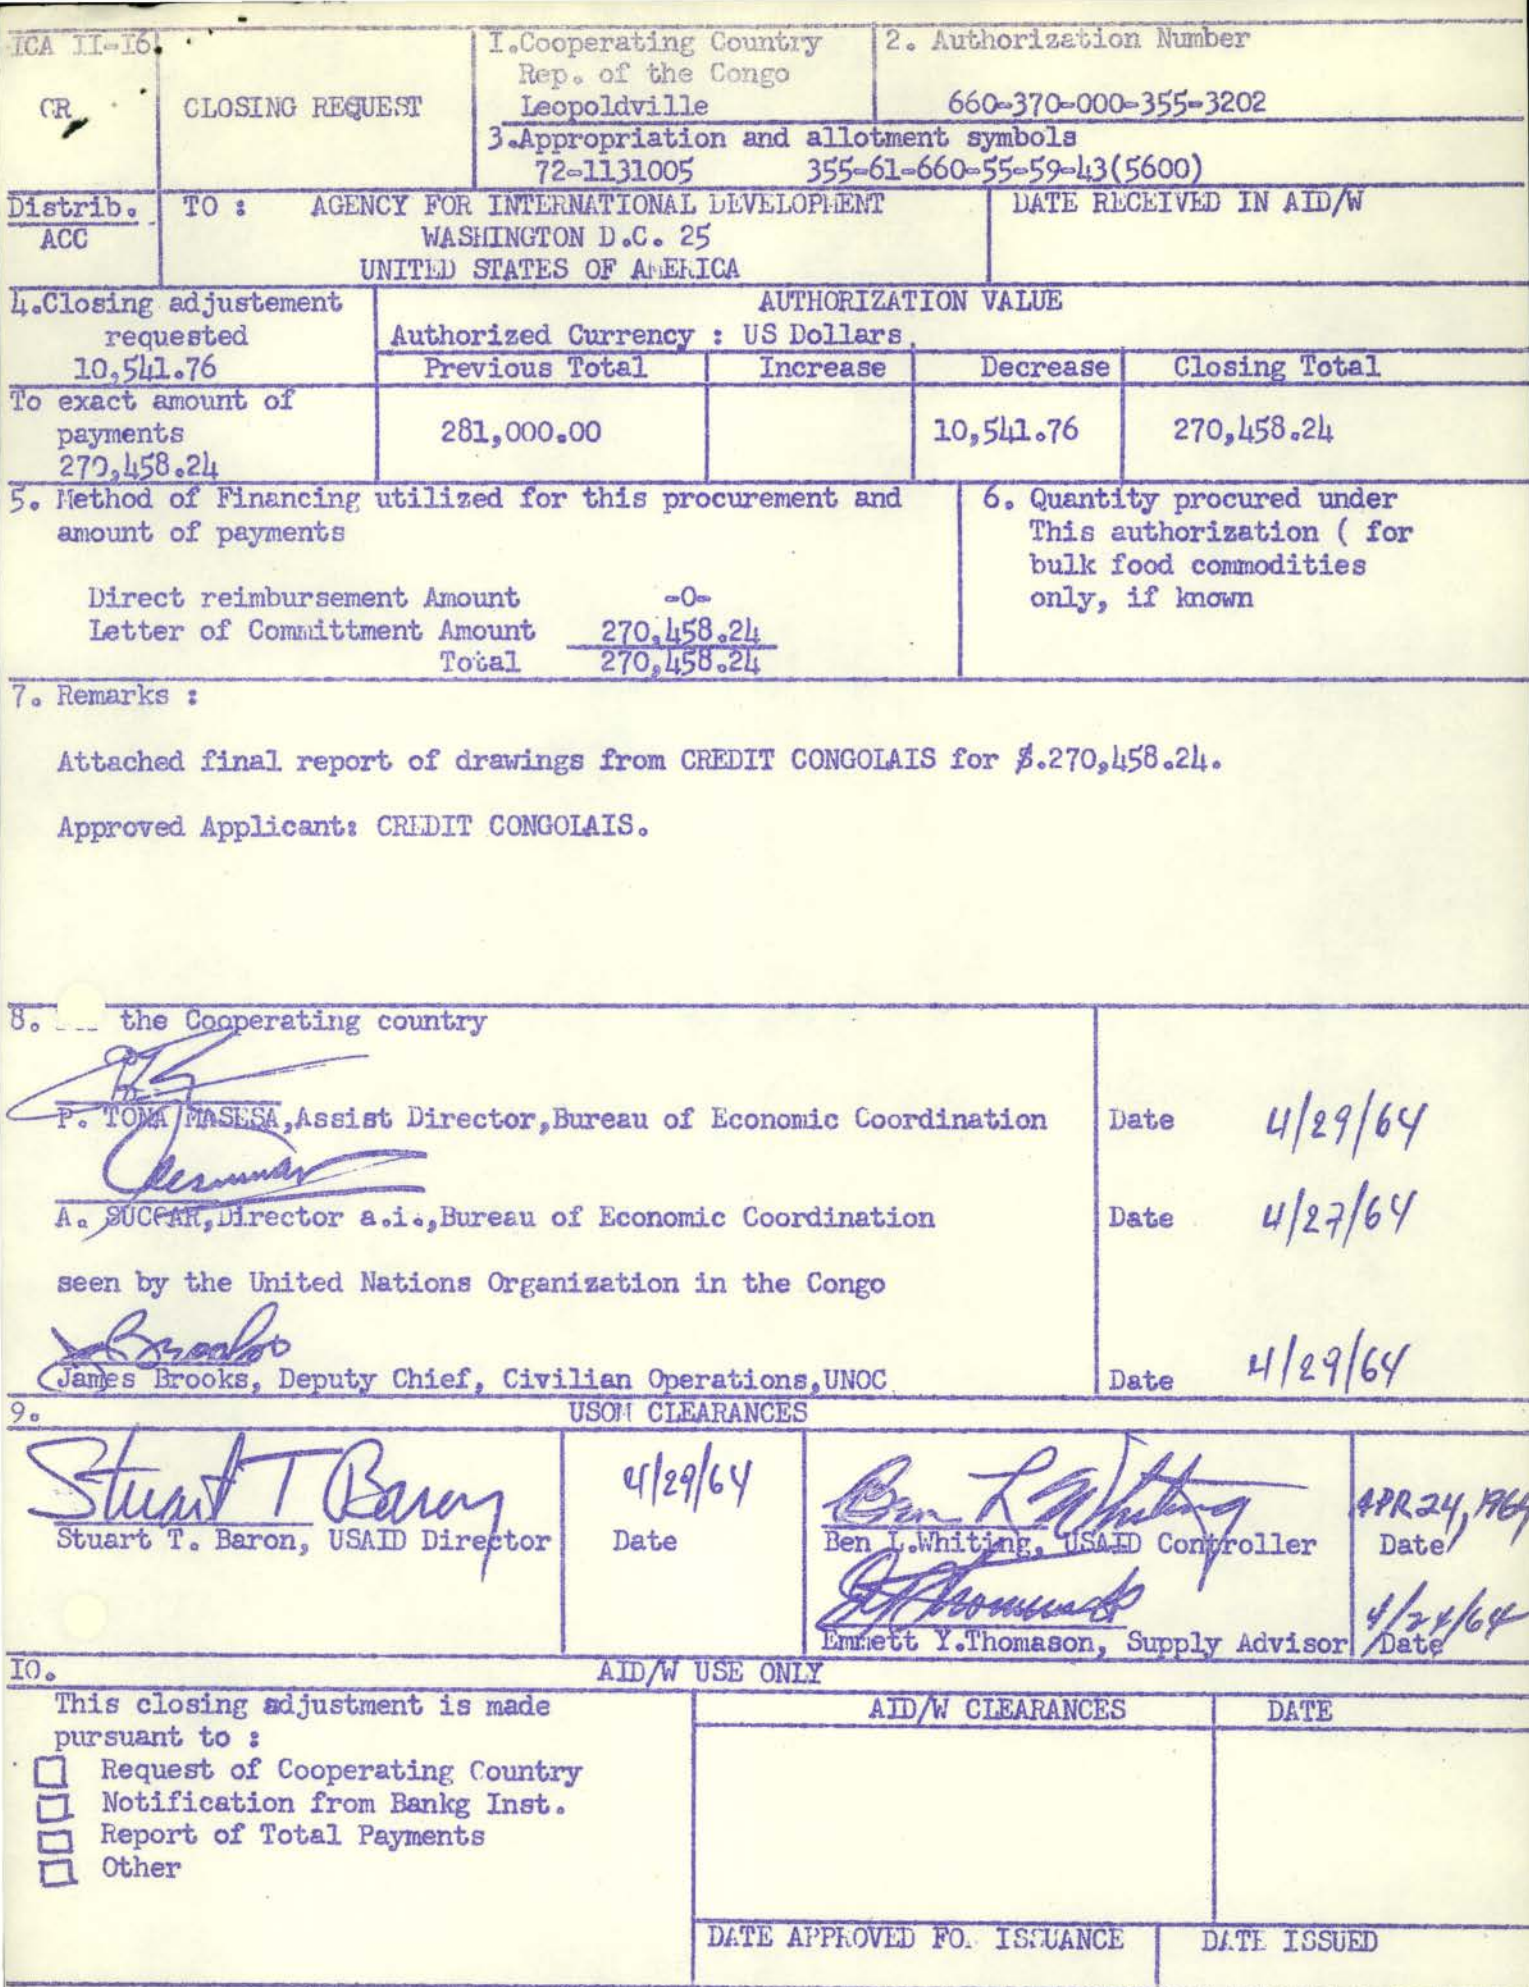 ICA II-16
CR
CLOSING REQUEST
I.Cooperating Country
Rep. of the Congo
Leopoldville
2. Authorization Number
660-370-000-355-3202
3.Appropriation and allotment symbols
72-1131005 355-61-660-55-59-43(5600)
Distrib.
ACC
TO : AGENCY FOR INTERNATIONAL DEVELOPMENT
WASHINGTON D.C. 25
UNITED STATES OF AMERICA
DATE RECEIVED IN AID/W
4.Closing adjustement
requested
10,541.76
AUTHORIZATION VALUE
Authorized Currency : US Dollars
Previous Total Increase Decrease Closing Total
To exact amount of
payments
270,458.24
281,000.00 10,541.76 270,458.24
5. Method of Financing utilized for this procurement and
amount of payments
Direct reimbursement Amount -0-
Letter of Committment Amount 270,458.24
Total 270,458.24
6. Quantity procured under
This authorization ( for
bulk food commodities
only, if known
7. Remarks :
Attached final report of drawings from CREDIT CONGOLAIS for $.270,458.24.
Approved Applicant: CREDIT CONGOLAIS.
8. the Cooperating country
P. TOMA MASESA,Assist Director,Bureau of Economic Coordination Date 4/29/64
A. SUCCAR,Director a.i.,Bureau of Economic Coordination Date 4/27/64
seen by the United Nations Organization in the Congo
JBrooks
James Brooks, Deputy Chief, Civilian Operations,UNOC Date 4/29/64
9. USOM CLEARANCES
Stuart T Baron
Stuart T. Baron, USAID Director
4/29/64
Date
Ben L Whiting
Ben L.Whiting, USAID Controller
APR 24, 1964
Date
Emmett Y.Thomason, Supply Advisor
4/24/64
Date
I0. AID/W USE ONLY
This closing adjustment is made
pursuant to :
Request of Cooperating Country
Notification from Bankg Inst.
Report of Total Payments
Other
AID/W CLEARANCES DATE
DATE APPROVED FO. ISSUANCE DATE ISSUED